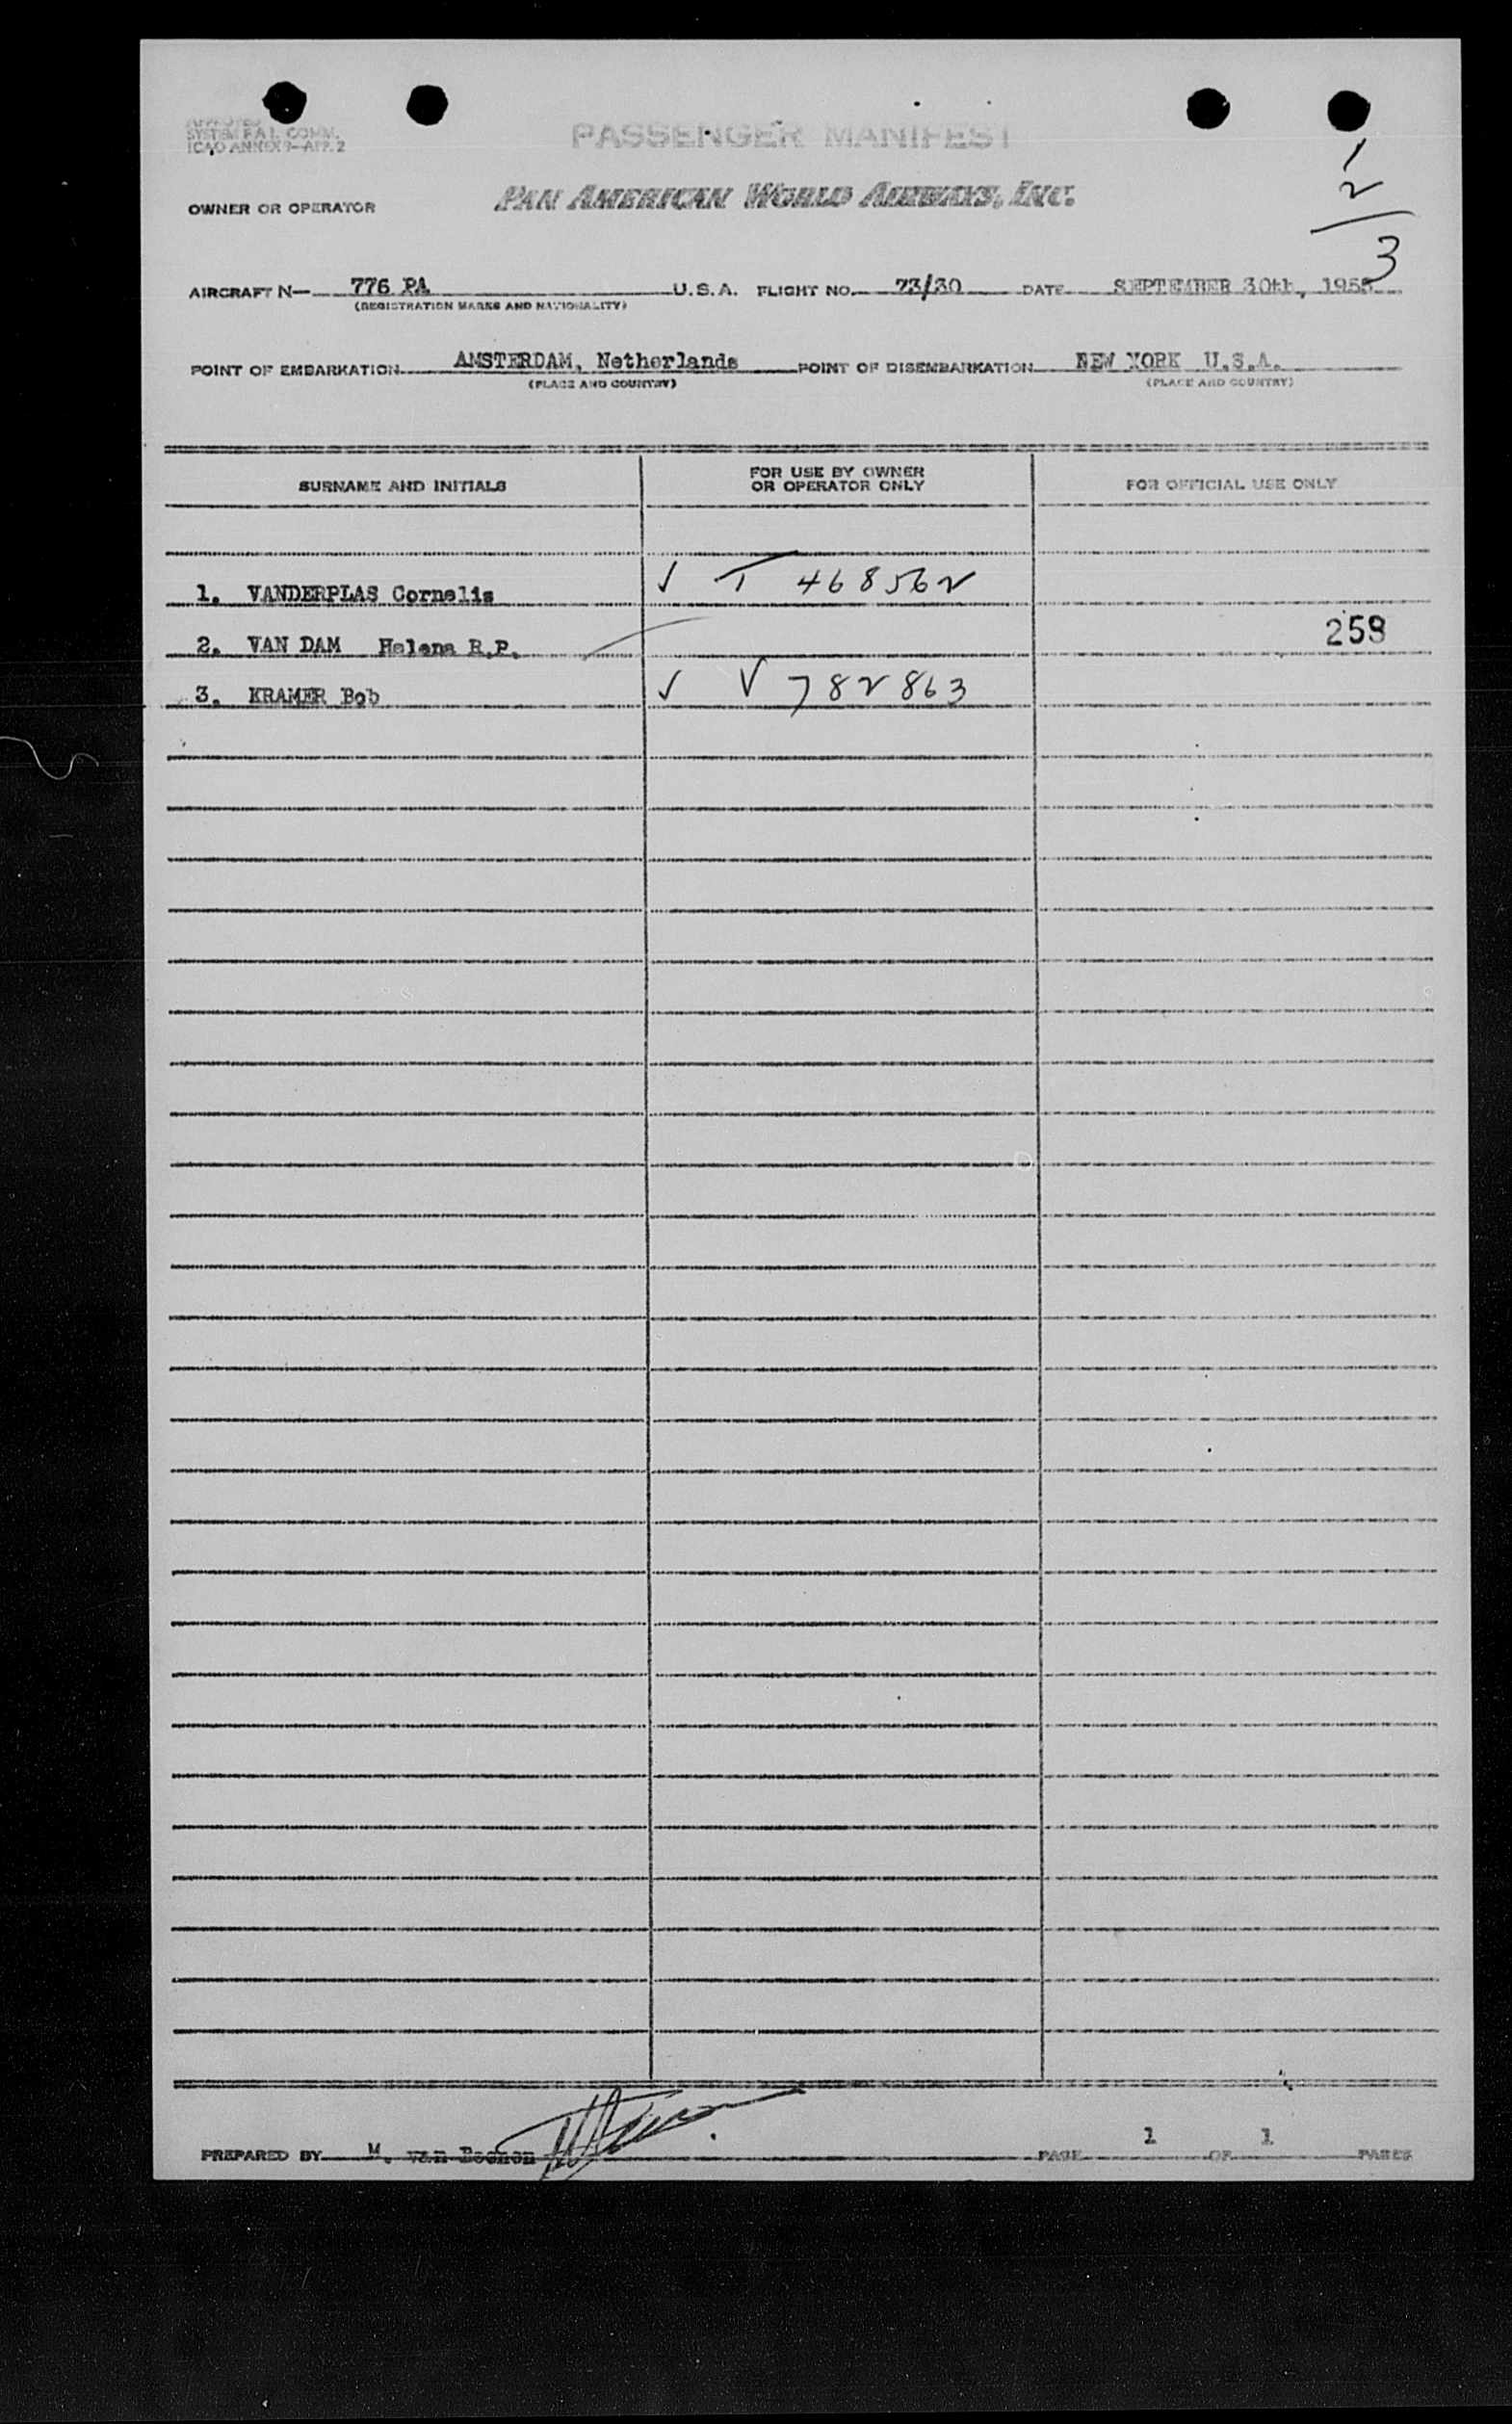 APPROVED
SYSTEM F.A.L. COMM.
ICAO ANNEX 9—APP. 2
PASSENGER MANIFEST
OWNER OR OPERATOR PAN AMERICAN WORLD AIRWAYS, INC.
1
2
3
AIRCRAFT N— 776 PA U.S.A. FLIGHT NO. 73/30 DATE SEPTEMBER 30th, 1955
(REGISTRATION MARKS AND NATIONALITY)
POINT OF EMBARKATION AMSTERDAM, Netherlands POINT OF DISEMBARKATION NEW YORK U.S.A.
(PLACE AND COUNTRY) (PLACE AND COUNTRY)
SURNAME AND INITIALS FOR USE BY OWNER OR OPERATOR ONLY FOR OFFICIAL USE ONLY
1. VANDERPLAS Cornelis √ T 468562
2. VAN DAM Helena R.P. 259
3. KRAMER Bob √ V 782863
PREPARED BY M. van PAGE 1 OF 1 PAGES